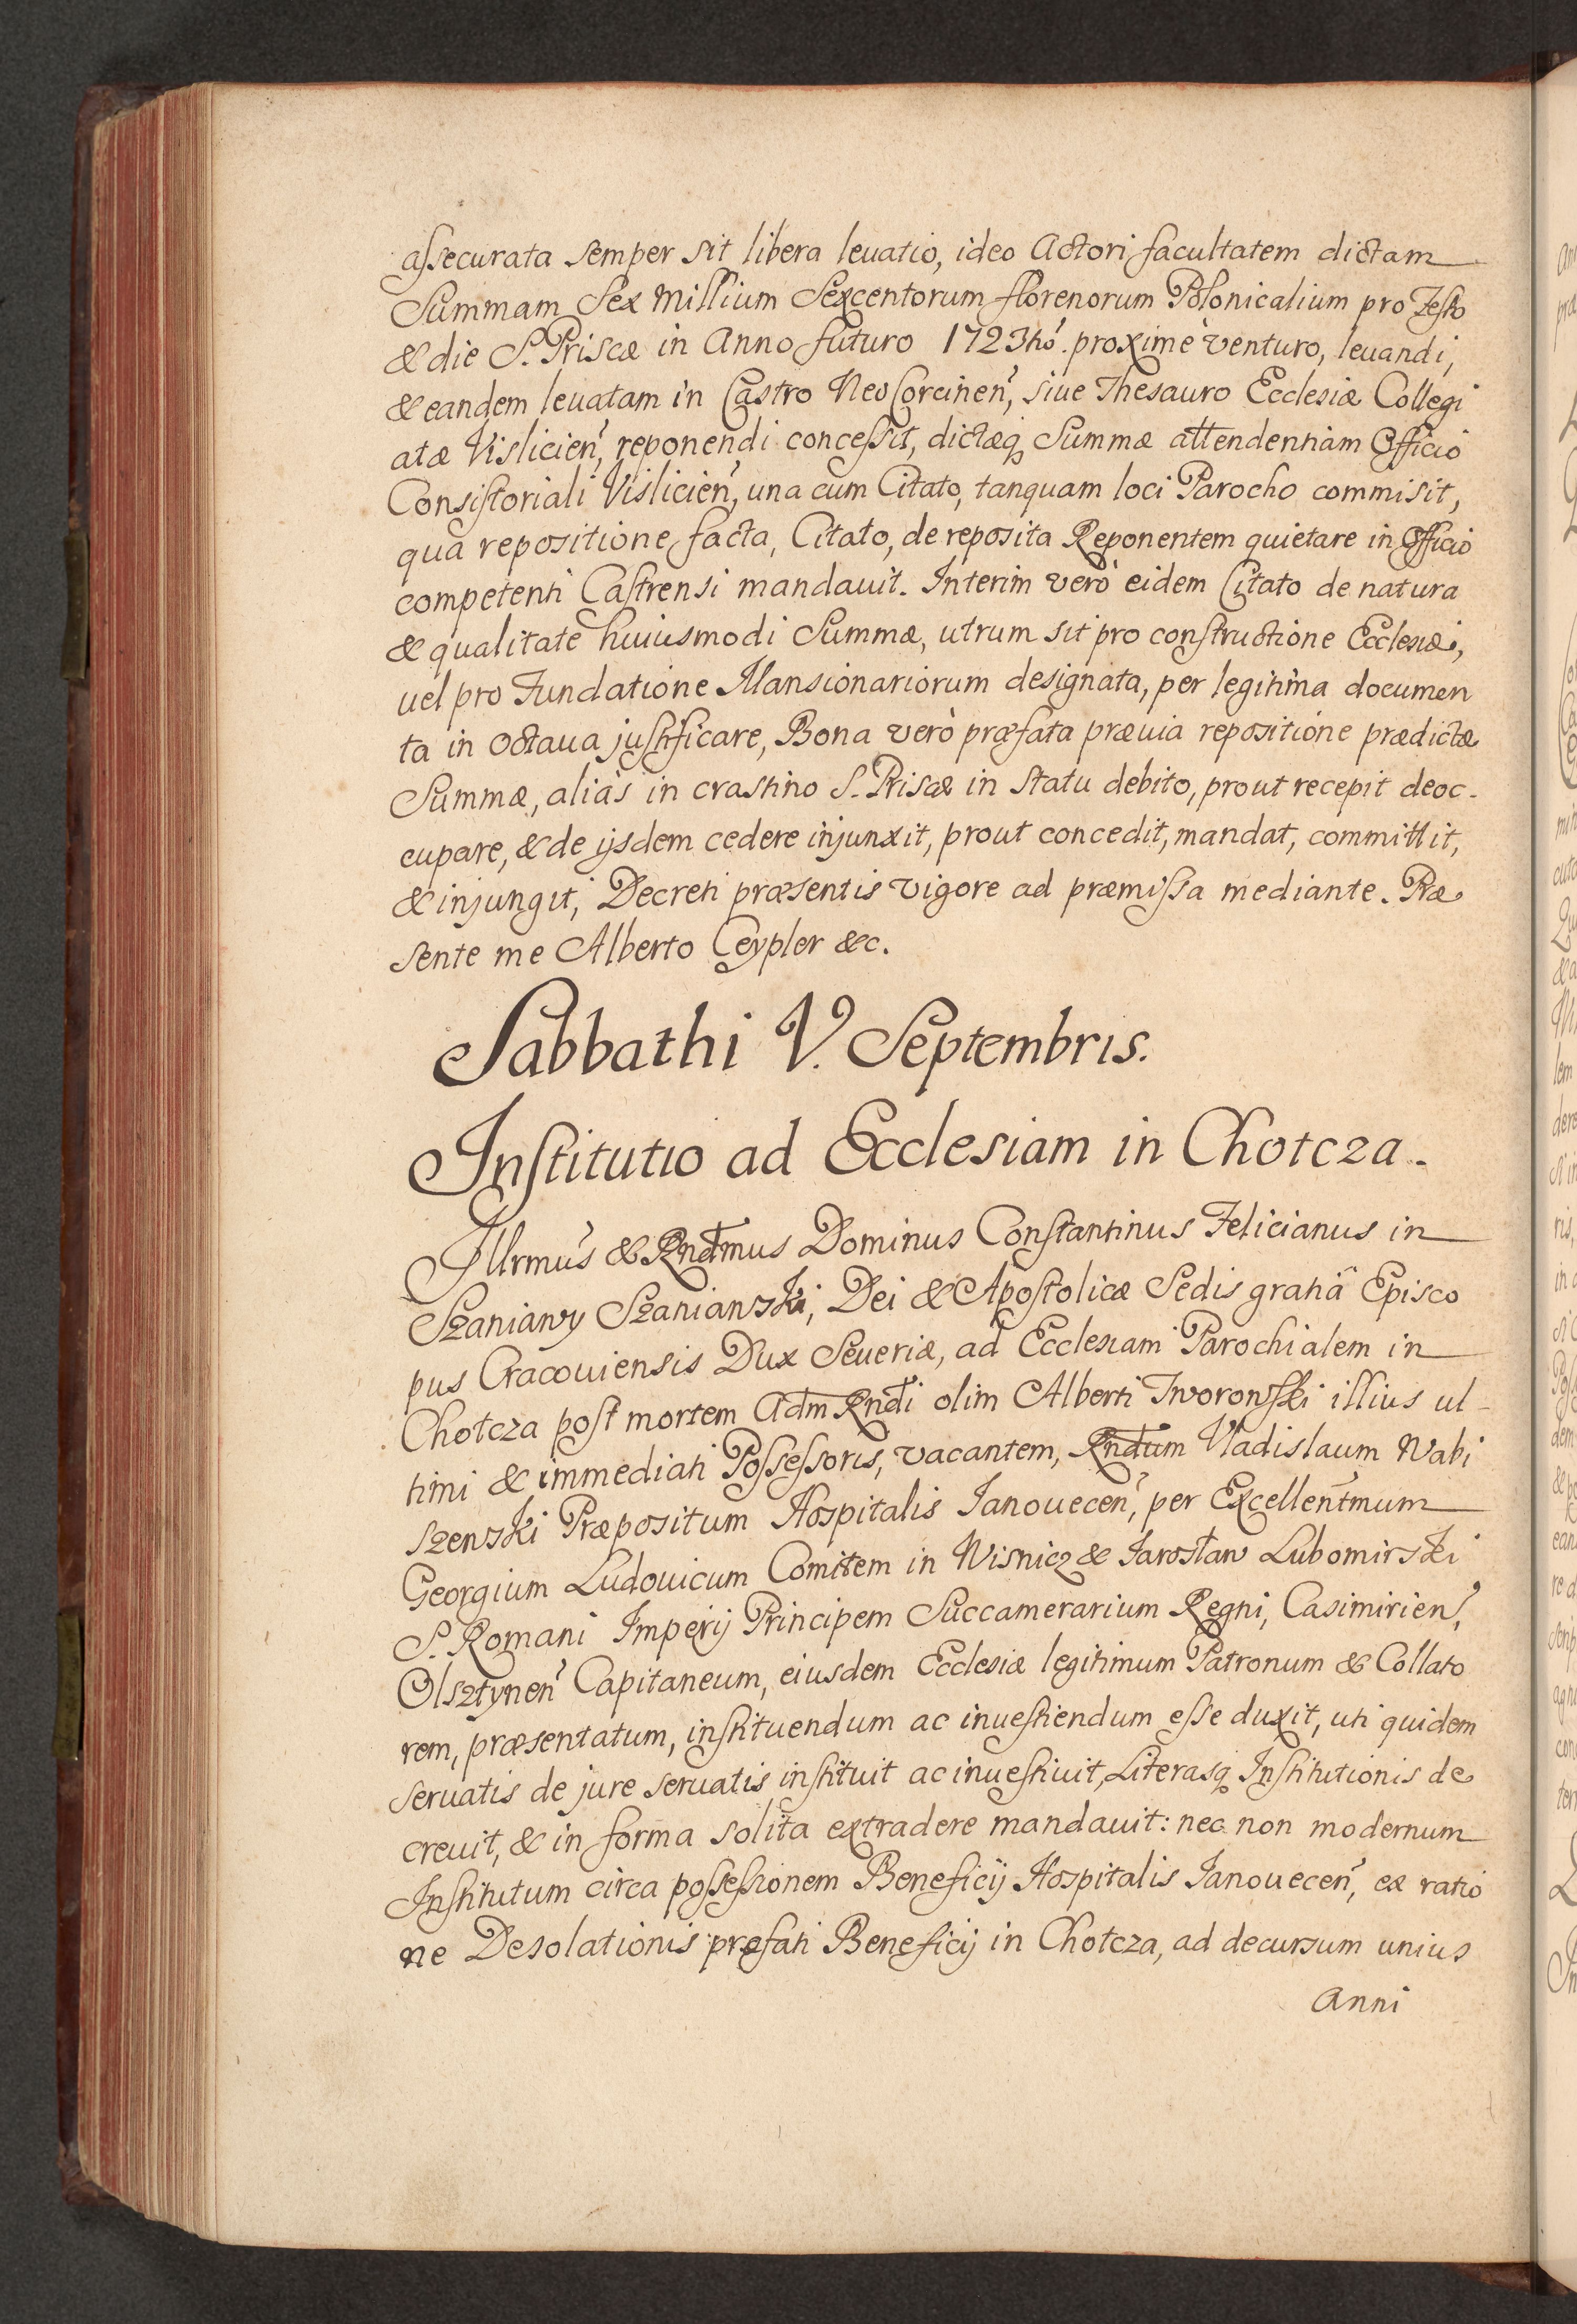 assecurata semper sit libera leuatio, ideo Actori facultatem dictam
Summam Sex Millium Sexcentorum florenorum Polonicalium pro Festo
& die S. Priscæ in Anno futuro 1723tió. proximè venturo, leuandi,
& eandem leuatam in Castro NeoCorcinen̄, siue Thesauro Ecclesiæ Collegi
atæ Vislicien̄, reponendi concessit, dictæq; Summæ attendentiam Officio
Consistoriali Vislicien̄, una cum Citato, tanquam loci Parocho commisit,
qua repositione facta, Citato, de reposita Reponentem quietare in Officio
competenti Castrensi mandauit. Interim verò eidem Citato de natura
& qualitate huiusmodi Summæ, utrum sit pro constructione Ecclesiæ,
uel pro Fundatione Mansionariorum designata, per legitima documen
ta in Octaua justificare, Bona verò præfata præuia repositione prædictæ
Summæ, aliàs in crastino S. Priscæ in statu debito, prout recepit deoc-
cupare, & de ijsdem cedere injunxit, prout concedit, mandat, committit,
& injungit, Decreti præsentis vigore ad præmissa mediante. Præ
sente me Alberto Ceypler &c.
Sabbathi V. Septembris.
Institutio ad Ecclesiam in Chotcza.
Illrmus & Rndmus Dominus Constantinus Felicianus in
Szaniawy Szaniawski, Dei & Apostolicæ Sedis gratiâ Episco
pus Cracouiensis Dux Seueriæ, ad Ecclesiam Parochialem in
Chotcza post mortem Adm Rndi olim Alberti Tworowski illius ul-
timi & immediati Possessoris, vacantem, Rndum Vladislaum Wabi
szenski Præpositum Hospitalis Ianouecen̄, per Excellentmum
Georgium Ludouicum Comitem in Wisnicz & Jarosław Lubomirski
S. Romani Imperij Principem Succamerarium Regni, Casimirien̄,
Olsztynen̄ Capitaneum, eiusdem Ecclesiæ legitimum Patronum & Collato
rem, præsentatum, instituendum ac inuestiendum esse duxit, uti quidem
seruatis de jure seruatis instituit ac inuestiuit, Literasq; Institutionis de
creuit, & in forma solita extradere mandauit: nec non modernum
Institutum circa possessionem Beneficij Hospitalis Ianouecen̄, ex ratio
ne Desolationis præfati Beneficij in Chotcza, ad decursum unius
Anni